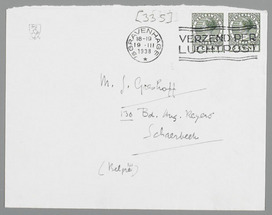 [335]
'S GRAVENHAGE
18-19
19 III
1938
VERZEND PER
LUCHTPOST
M. J. Greshoff
130 Bd. Aug. Reyers
Schaerbeek
(België)